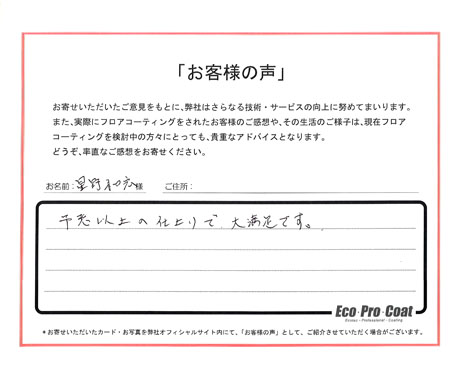 「お客様の声」
お寄せいただいたご意見をもとに、弊社はさらなる技術・サービスの向上に努めてまいります。
また、実際にフロアコーティングをされたお客様のご感想や、その生活のご様子は、現在フロア
コーティングを検討中の方々にとっても、貴重なアドバイスとなります。
どうぞ、率直なご感想をお寄せください。
お名前：星野和宏様 ご住所：
予想以上の仕上りで、大満足です。
Eco・Pro・Coat
Protex・Professional・Coating
＊お寄せいただいたカード・お写真を弊社オフィシャルサイト内にて、「お客様の声」として、ご紹介させていただく場合がございます。